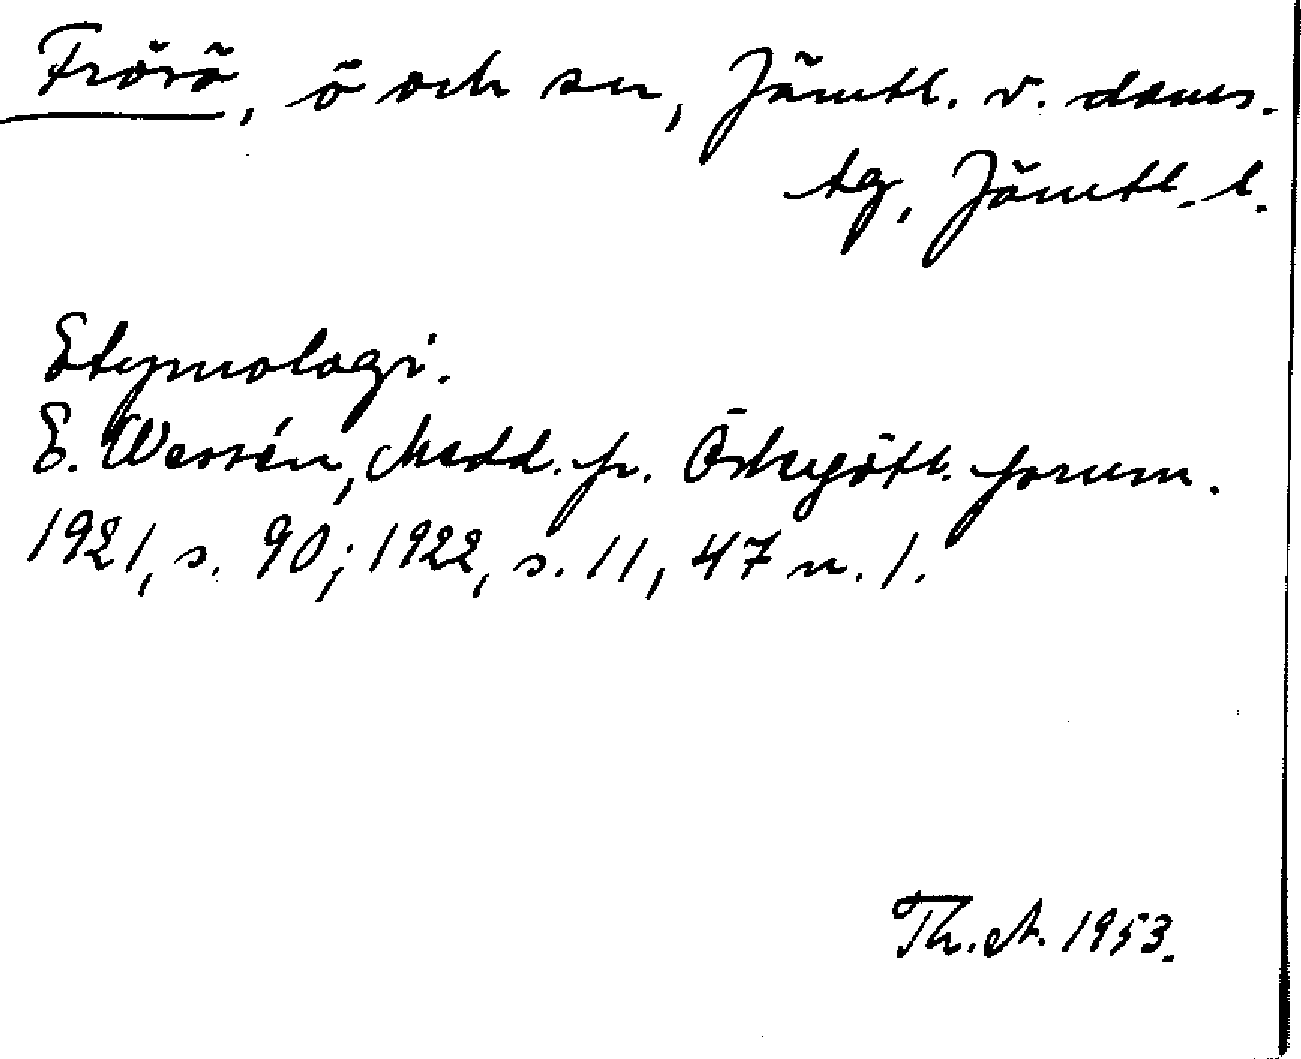 Frösö, ö och sn, Jämtl. v. doms.
tg, Jämtl. l.
Etymologi.
E. Wessén, Medd. fr. Östergötl. fornm.
1921, s. 90; 1922, s. 11, 47 n. 1.
Th. A. 1953.